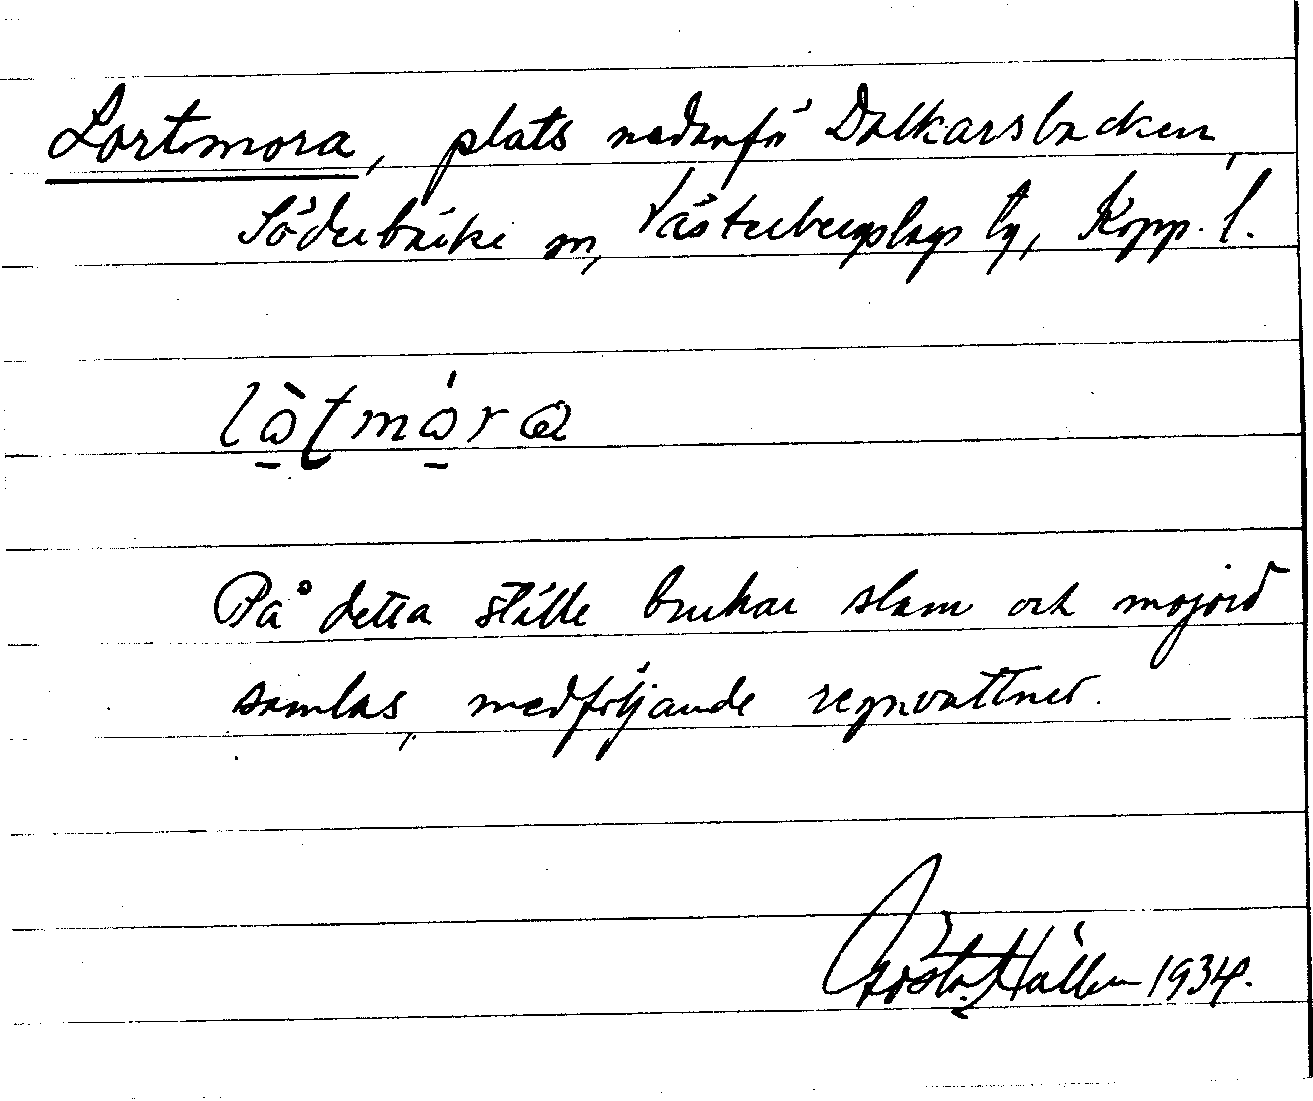 Lortmora, plats nedanför Dalkarsbacken,
Söderbärke sn, Västerbergslags tg, Kopp. l.
lòṯmóra
På detta ställe brukar slam och mojord
samlas, medföljande regnvattnet.
Gösta Hällen 1934.